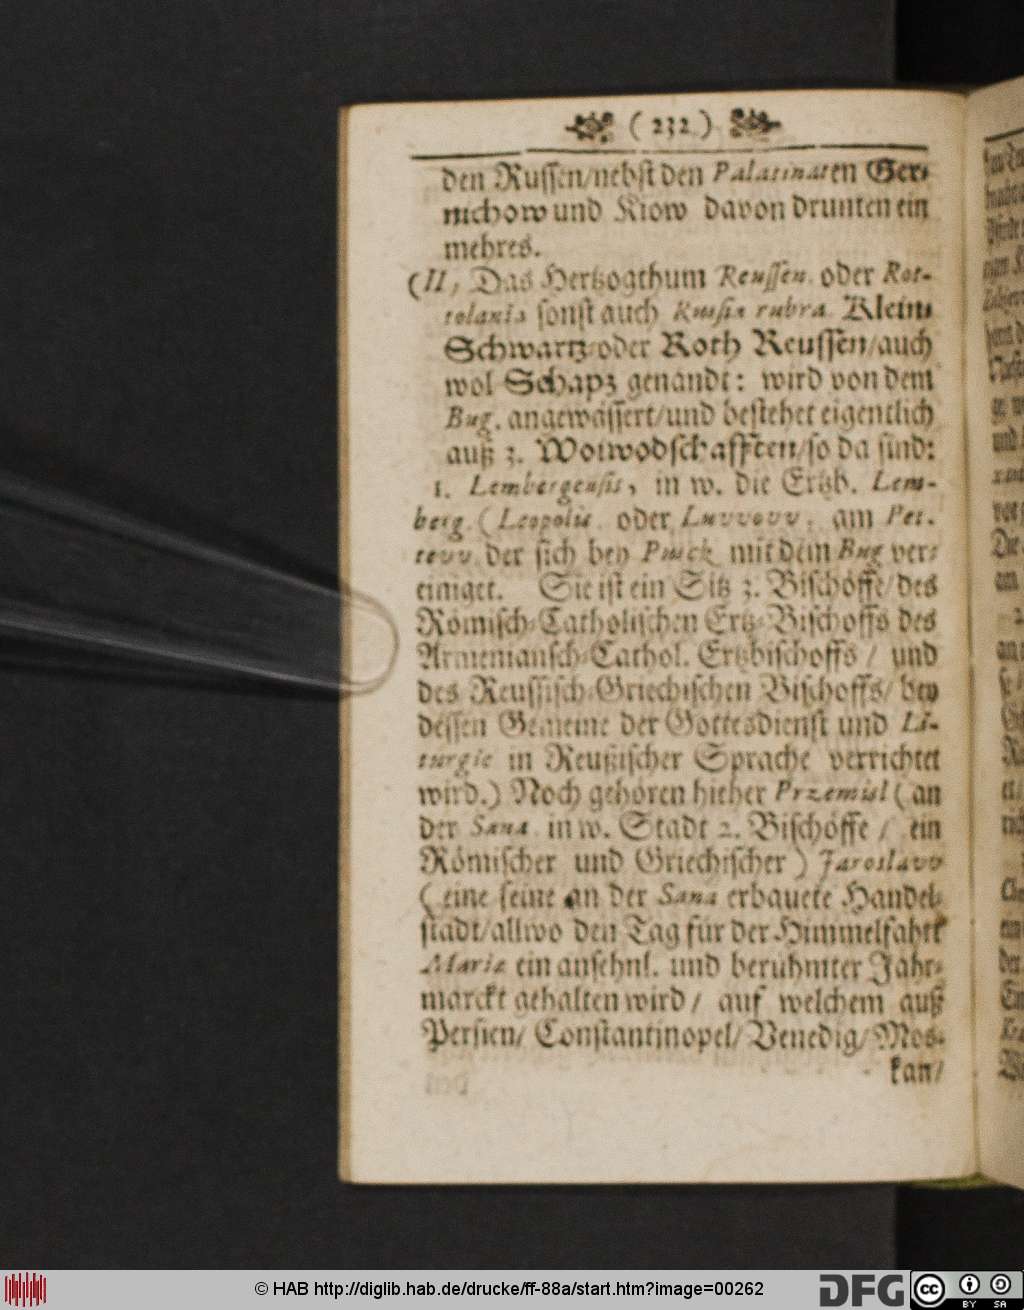 ( 232 )
den Russen/nebst den Palatinaten Ger-
nichow und Kiow davon drunten ein
mehres.
(II, Das Hertzogthum Reussen. oder Rox-
tolania sonst auch Russia rubra Klein-
Schwartz-oder Roth Reussen/auch
wol Schapz genandt: wird von dem
Bug. angewässert/und bestehet eigentlich
auß 3. Woiwodschafften/so da sind:
1. Lembergensis, in w. die Ertzb. Lem-
berg. (Leopolis. oder Luvvovv, am Pel-
tevv. der sich bey mit dem Bug ver-
einiget. Sie ist ein Sitz 3. Bischöffe/des
Römisch-Catholischen Ertz-Bischoffs des
Armeniansch-Cathol. Ertzbischoffs/ und
des Reussisch-Griechischen Bischoffs/ bey
dessen Gemeine der Gottesdienst und Li-
turgie in Reußischer Sprache verrichtet
wird.) Noch gehören hieher Przemisl (an
der Sana. in w. Stadt 2. Bischöffe/ ein
Römischer und Griechischer) Jaroslavv
(eine feine an der Sana erbauete Handel-
stadt/allwo den Tag für der Himmelfahrt
Mariæ ein ansehnl. und berühmter Jahr-
marckt gehalten wird/ auf welchem auß
Persien/ Constantinopel/ Venedig/ Mos-
kau/
© HAB http://diglib.hab.de/drucke/ff-88a/start.htm?image=00262
DFG
cc
BY SA